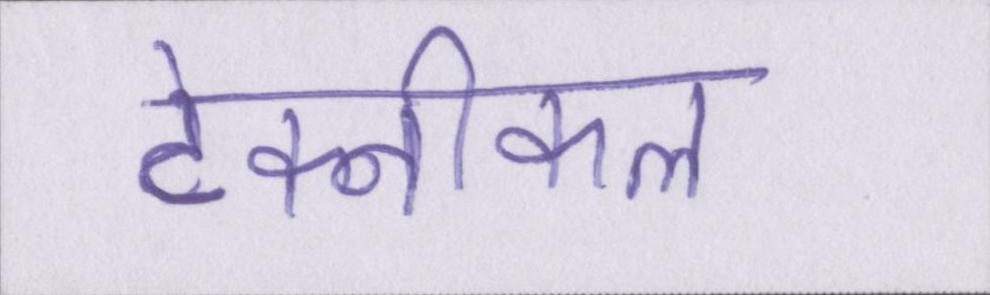 टेक्नीकल